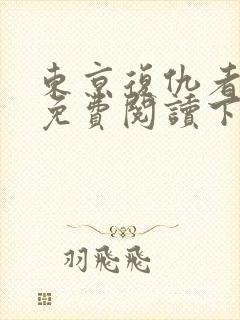 東京復仇者
免費閱讀下
羽飛飛